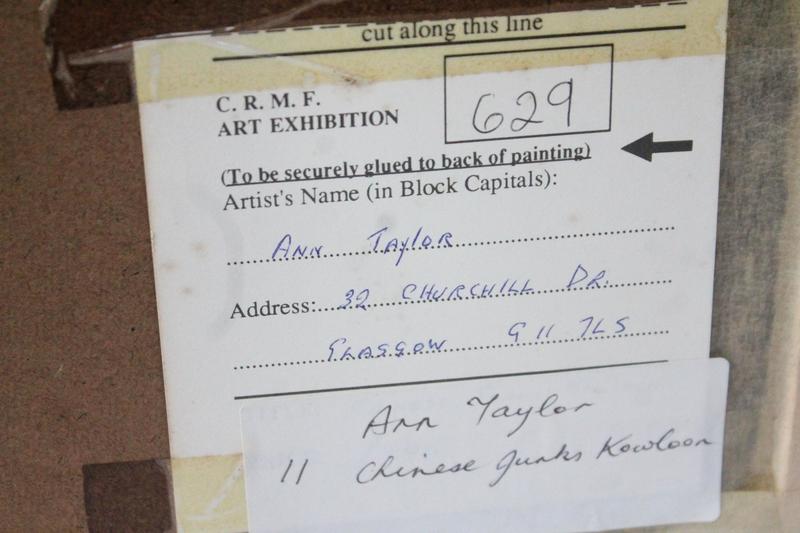 cut along this line
C. R. M. F.
ART EXHIBITION
629
(To be securely glued to back of painting)
Artist's Name (in Block Capitals):
ANN TAYLOR
Address: 32 CHURCHILL DR.
GLASGOW G11 7LS
Ann Taylor
11 Chinese Junks Kowloon